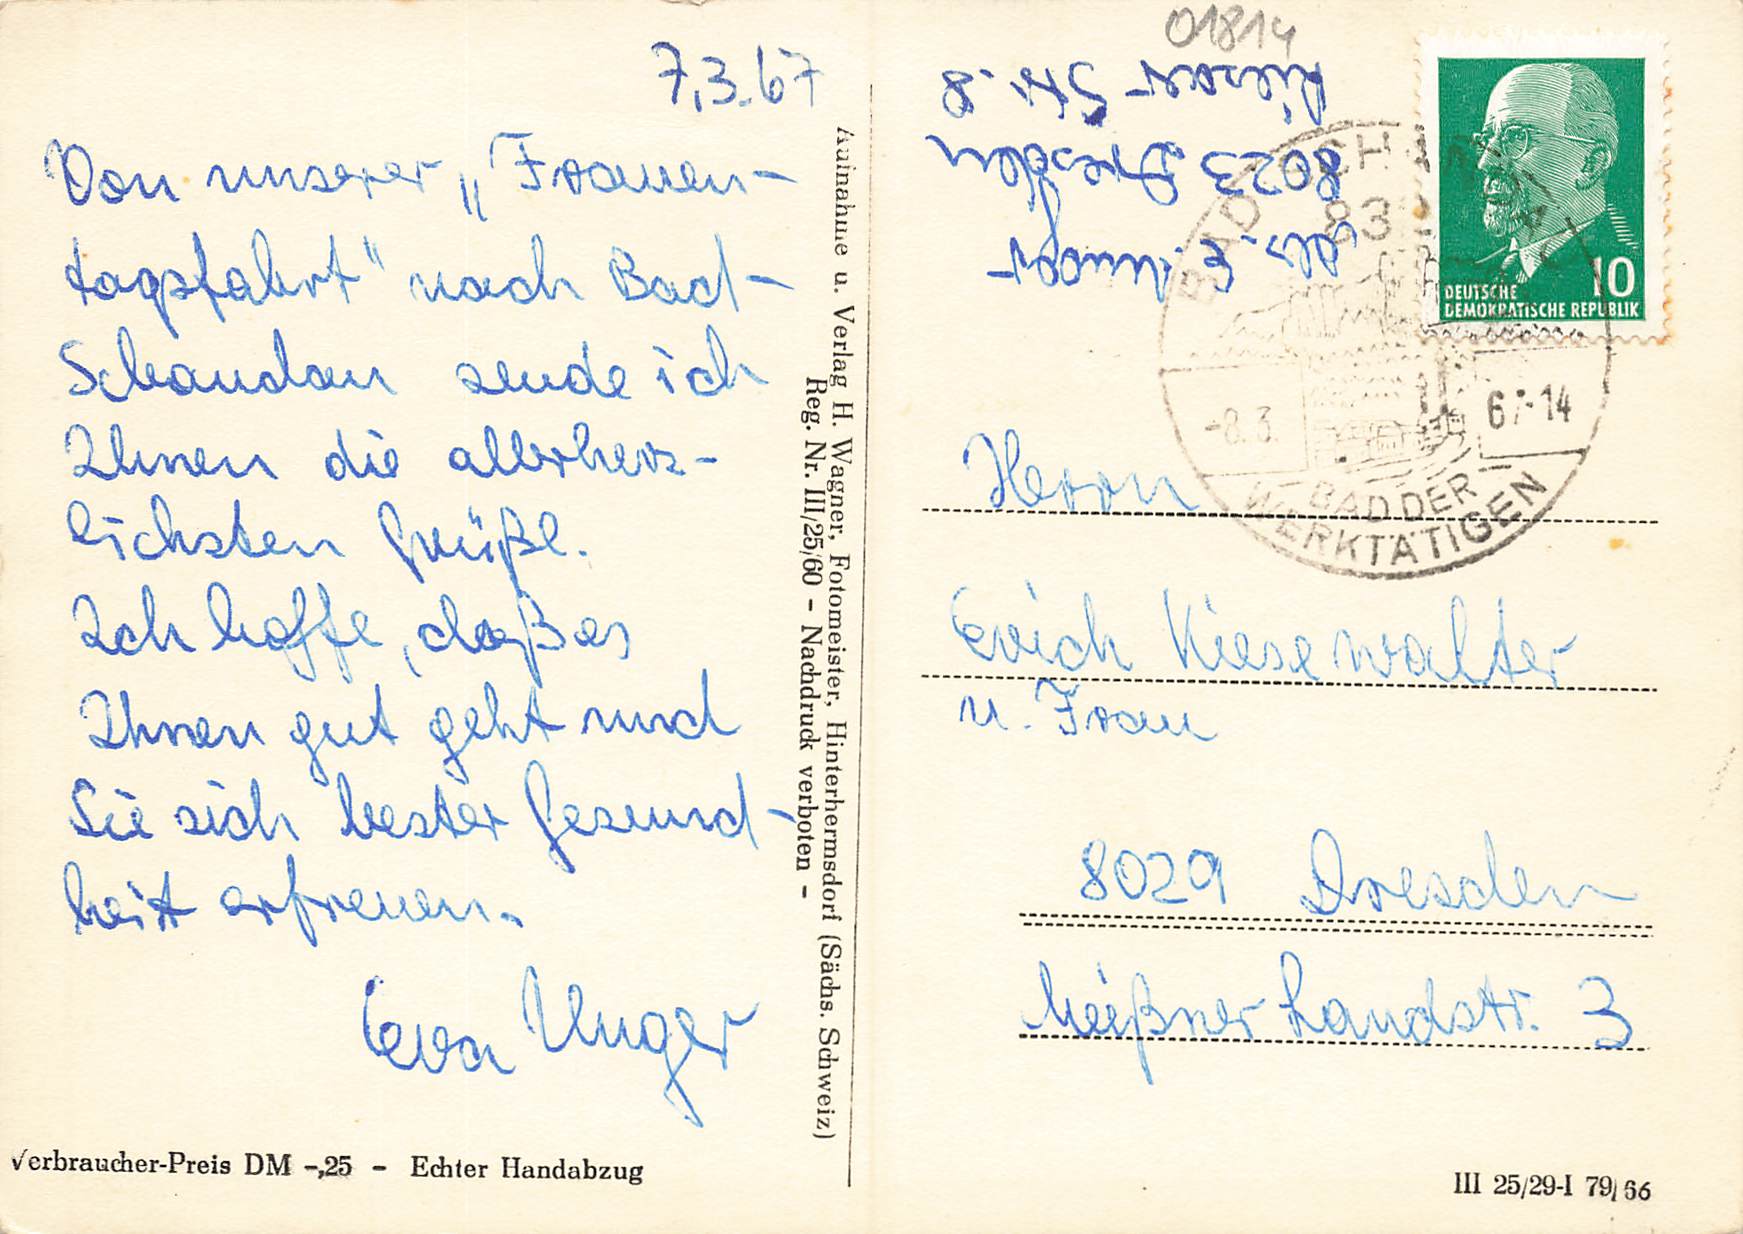 7.3.67
Von unserer „Frauen-
tagsfahrt" nach Bad-
Schandau sende ich
Ihnen die allerherz-
lichsten Grüße.
Ich hoffe, daß es
Ihnen gut geht und
Sie sich bester Gesund-
heit erfreuen.
Eva Unger
Verbraucher-Preis DM -,25 - Echter Handabzug
Aufnahme u. Verlag H. Wagner, Fotomeister, Hinterhermsdorf (Sächs. Schweiz)
Reg. Nr. III/25/60 - Nachdruck verboten -
01814
Abs. E. Unger
8023 Dresden
Rieser Str. 8
10
DEUTSCHE
DEMOKRATISCHE REPUBLIK
BAD SCHANDAU
832
-8.3. 67-14
BAD DER
WERKTÄTIGEN
Herrn
Erich Kiesewalter
u. Frau
8029 Dresden
Meißner Landstr. 3
III 25/29-I 79/66